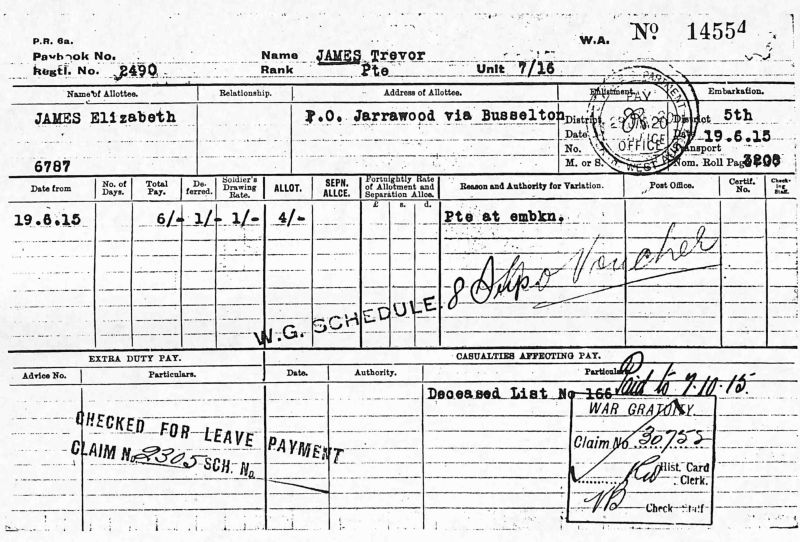 P.R. 6a.
W.A. Nº 14554
Paybook No.
Name JAMES Trevor
Regtl. No. 2490
Rank Pte
Unit 7/16
Name of Allottee. Relationship. Address of Allottee. Enlistment. Embarkation.
JAMES Elizabeth
P.O. Jarrawood via Busselton
District
District 5th
Date
Date 19.6.15
No.
Transport
6787
M. or S.
Nom. Roll Page
PAY
OFFICE
Date from No. of Days. Total Pay. Deferred. Soldier's Drawing Rate. ALLOT. SEPN. ALLCE. Fortnightly Rate of Allotment and Separation Allce. £ s. d. Reason and Authority for Variation. Post Office. Certif. No. Checking Staff.
19.6.15 6/- 1/- 1/- 4/- Pte at embkn.
W.G. SCHEDULE. 8 Voucher
EXTRA DUTY PAY. CASUALTIES AFFECTING PAY.
Advice No. Particulars. Date. Authority. Particulars
Deceased List No 166 Paid to 7.10.15.
CHECKED FOR LEAVE PAYMENT
CLAIM No 2305 SCH. No
WAR GRATUITY.
Claim No 30755
Hist. Card
Clerk.
Check Staff